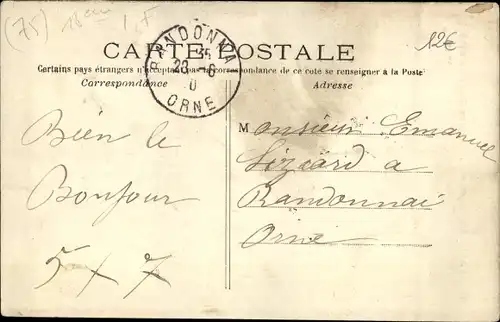 (75) 18em 1F
12€
CARTE POSTALE
RANDONNAI
35
23 6
0
ORNE
Certains pays étrangers n'acceptant pas la correspondance de ce côté se renseigner à la Poste
Correspondance
Adresse
Bien le
Bonjour
5 x 7
Monsieur Emanuel
Liziard a
Randonnai
Orne